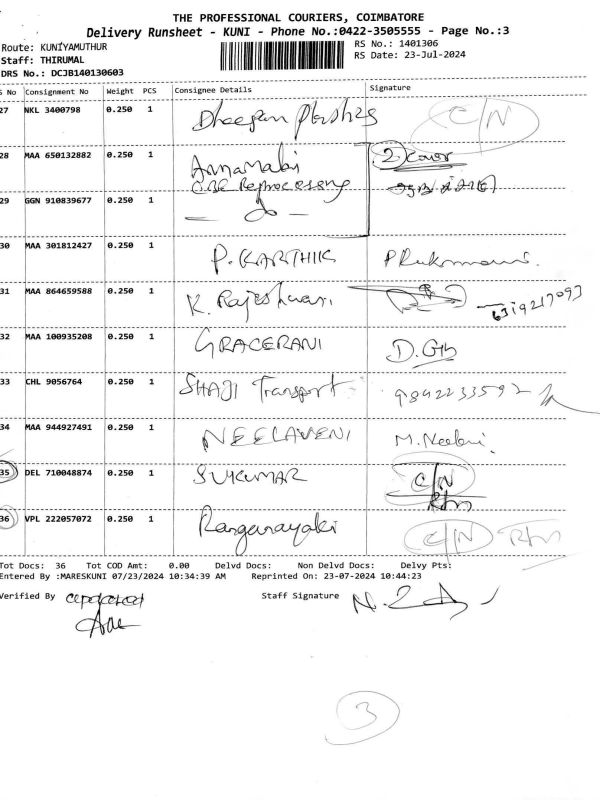 THE PROFESSIONAL COURIERS, COIMBATORE
Delivery Runsheet - KUNI - Phone No.:0422-3505555 - Page No.:3
Route: KUNIYAMUTHUR
RS No.: 1401306
Staff: THIRUMAL
RS Date: 23-Jul-2024
DRS No.: DCJB140130603
S No Consignment No Weight PCS Consignee Details Signature
27 NKL 3400798 0.250 1 C/N
28 MAA 650132882 0.250 1 Annamalai 2 Cover
CBE Reprocessing
29 GGN 910839677 0.250 1 — do —
30 MAA 301812427 0.250 1 P. KARTHIK P Rukmani.
31 MAA 864659588 0.250 1 K. Rajeshwari 6319217093
32 MAA 100935208 0.250 1 GRACERANI
33 CHL 9056764 0.250 1 SHAJI Transport 9842233592
34 MAA 944927491 0.250 1 NEELAVENI M. Neelani
35 DEL 710048874 0.250 1 SUKUMAR C/N
36 VPL 222057072 0.250 1 Ranganayaki C/N
Tot Docs: 36 Tot COD Amt: 0.00 Delvd Docs: Non Delvd Docs: Delvy Pts:
Entered By :MARESKUNI 07/23/2024 10:34:39 AM Reprinted On: 23-07-2024 10:44:23
Verified By Staff Signature
3